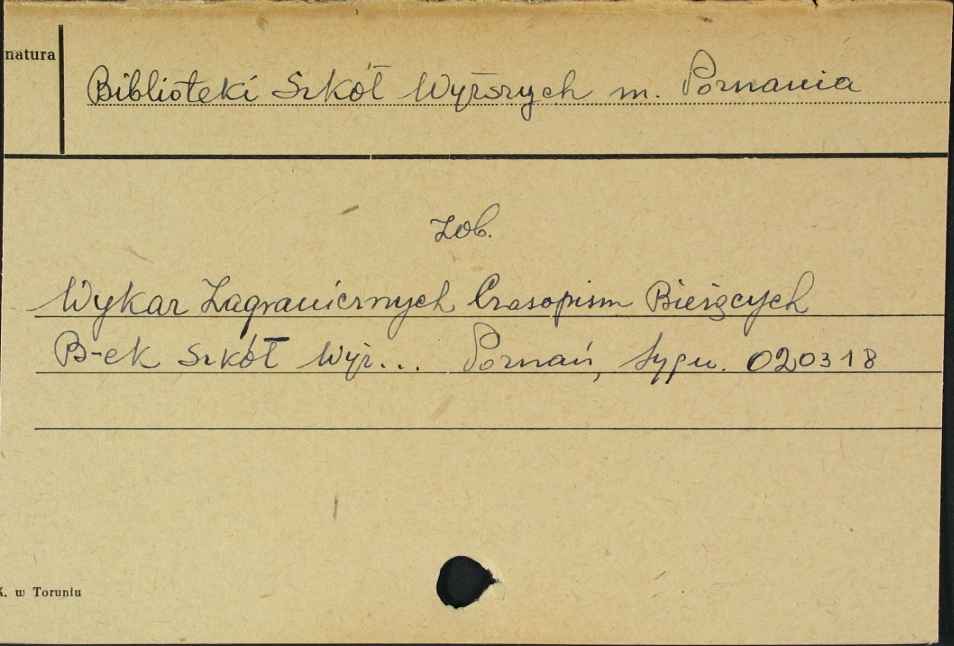 natura
Biblioteki Szkół Wyższych m. Poznania
Zob.
Wykaz Zagranicznych Czasopism Bieżących
B-ek Szkół Wyż... Poznań, Sygn. 020318
K. w Toruniu